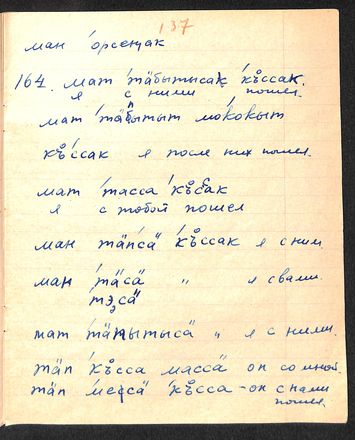 137
ман о́рсеңак
164. мат тӓбытысак къ̊ссак.
я с ними пошел
мат тӓбытыт мо́ко̄кыт
къ̊ссак я после них пошел.
мат тасса къ̊ссак
я с тобой пошел
ман тӓпсӓ къ̊ссак я с ним
ман тӓсӓ " я с вами.
тэсӓ
мат тӓпытысӓ " я с ними.
тӓп къ̊сса массӓ он со мной.
тӓп месӓ къ̊сса - он с нами
пошел